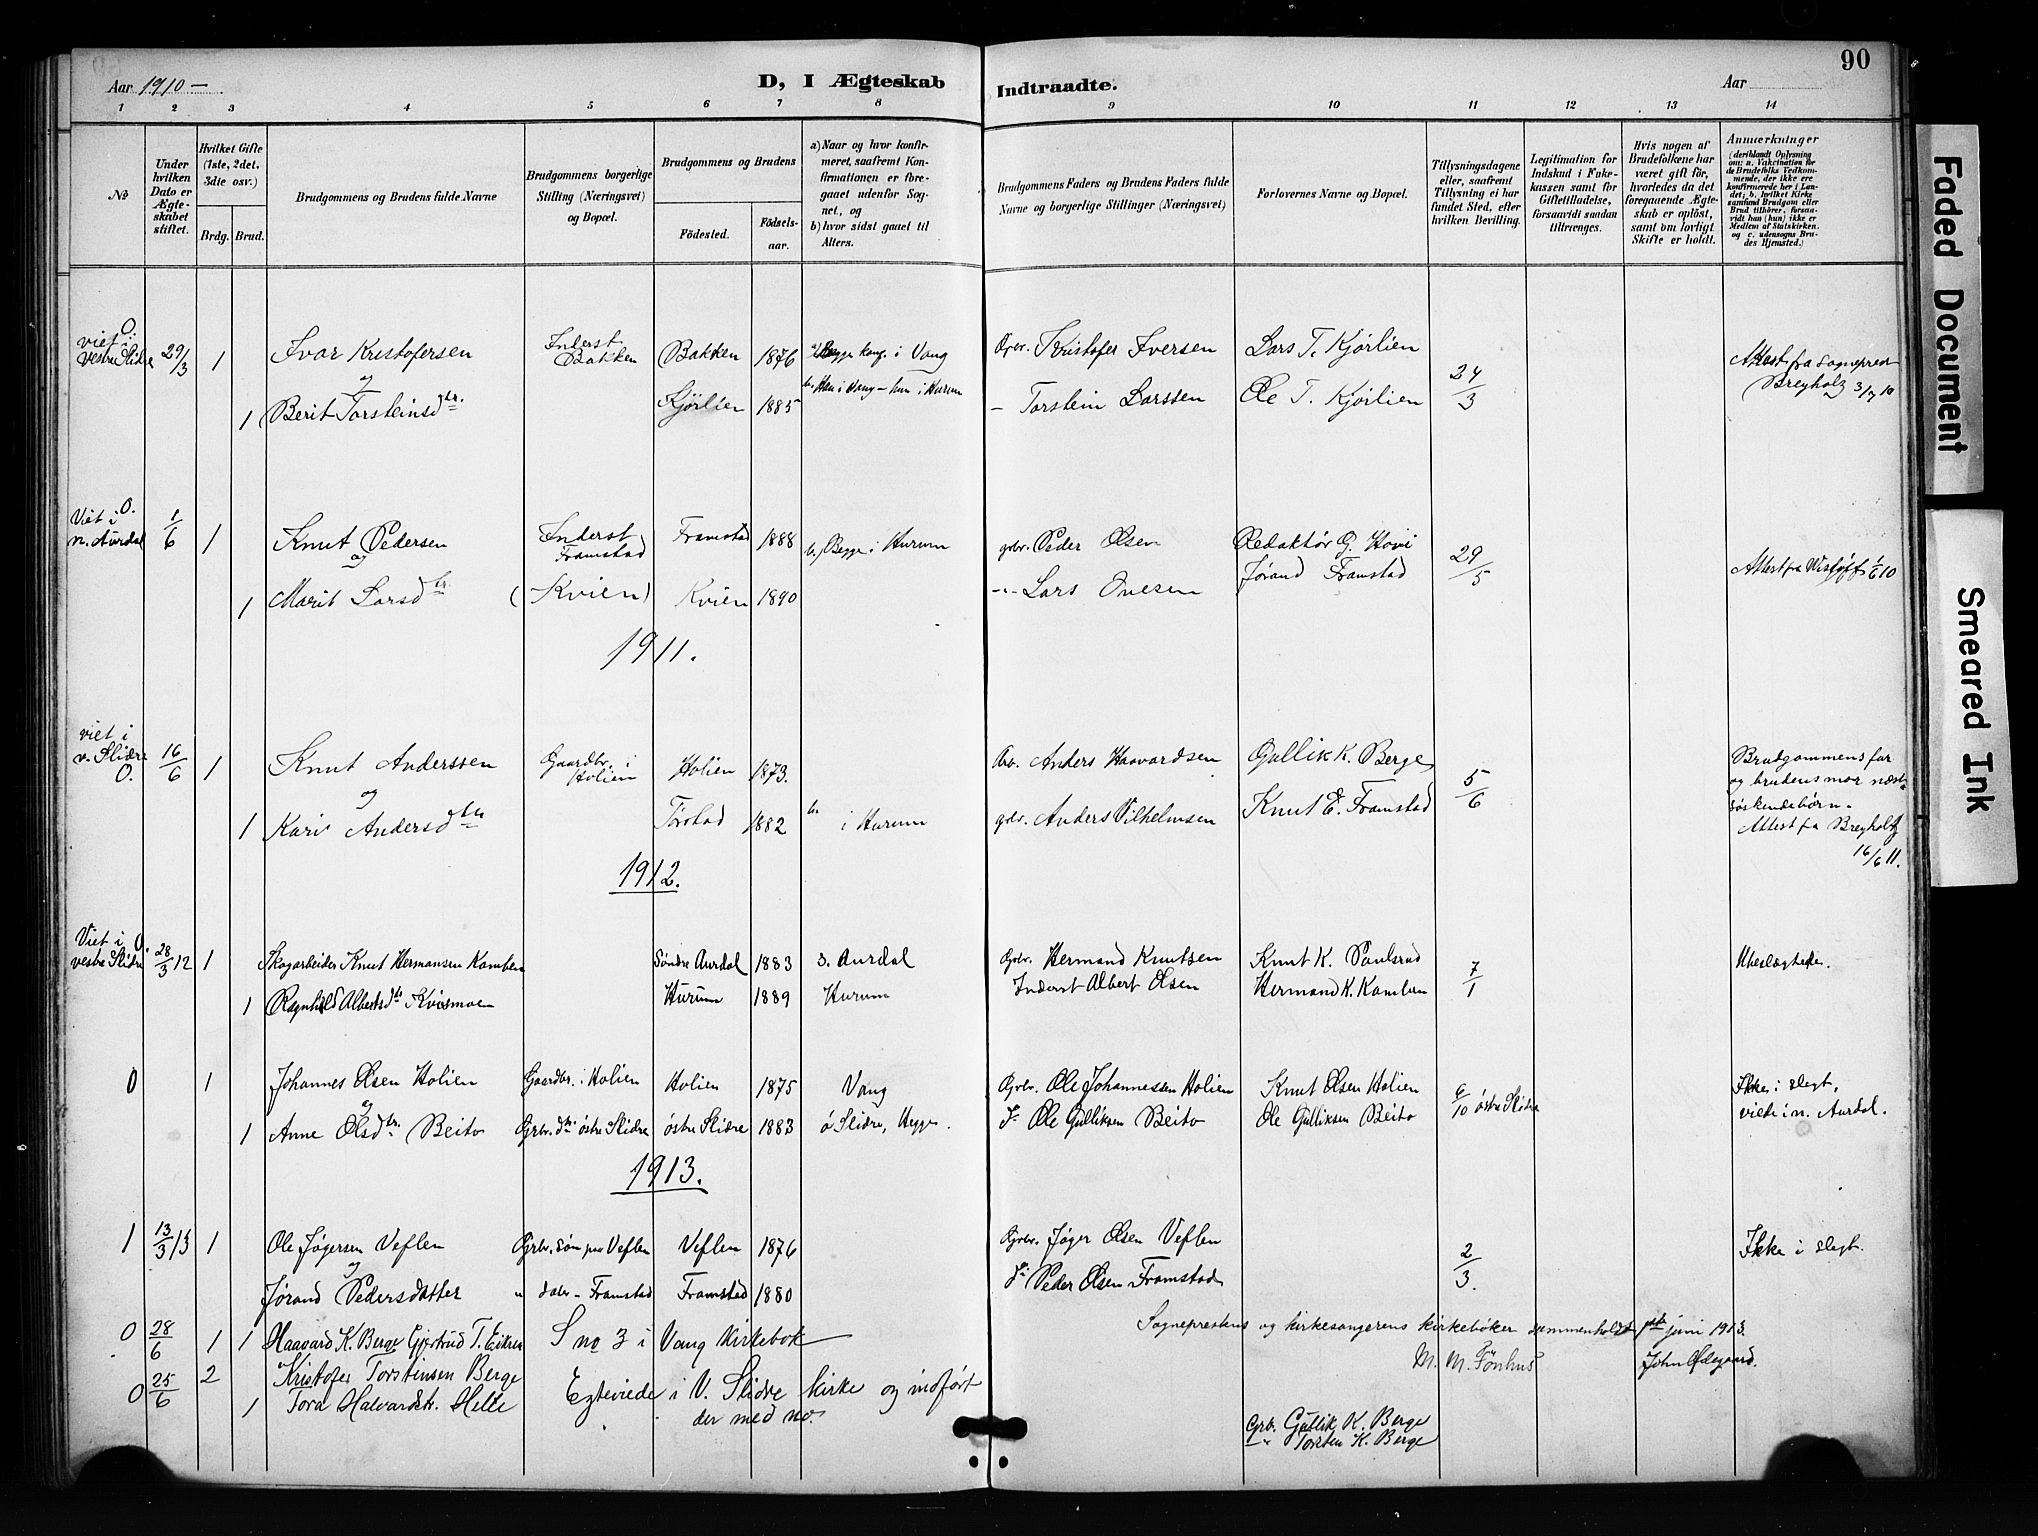 90
Aar 1910 –
D, I Ægteskab
Indtraadte.
Aar
1 2 3 4 5 6 7 8 9 10 11 12 13 14
No
Under hvilken Dato er Ægteskabet stiftet.
Hvilket Gifte (1ste, 2det, 3die osv.)
Brdg. Brud.
Brudgommens og Brudens fulde Navne
Brudgommens borgerlige Stilling (Næringsvei) og Bopæl.
Brudgommens og Brudens
Födested.
Födsels-aar.
a) Naar og hvor konfirmeret, saafremt Konfirmationen er foregaaet udenför Sognet, og
b) hvor sidst gaaet til Alters.
Brudgommens Faders og Brudens Faders fulde Navne og borgerlige Stillinger (Næringsvei)
Forlovernes Navne og Bopæl.
Tillysningsdagene eller, saafremt Tillysning ei har fundet Sted, efter hvilken Bevilling.
Legitimation for Indskud i Enkekassen samt för Giftetilladelse, forsaavidt saadan tiltrænges.
Hvis nogen af Brudefolkene har været gift för, hvorledes da det foregaaende Ægteskab er oplöst, samt om lovligt Skifte er holdt.
Anmærkninger
(deriblandt Oplysning om: a. Vakcination for de Brudefolks Vedkommende, der ikke ere konfirmerede her i Landet; b. hvilket Kirkesamfund Brudgom eller Brud tilhörer, forsaavidt han (hun) ikke er Medlem af Statskirken, og c. udensogns Brudes Hjemsted.)
0.
viet i vestre Slidre 29/3 1 Ivar Kristofersen Inderst Bakken Bakken 1876 a) Begge konf. i Vang Grbr. Kristofer Iversen Lars T. Kjørlien 24/3 Attest fra sogneprest Breyholz
og
b. Han i Vang – hun i Hurum
1 Berit Torsteinsdtr. Kjørlien 1885 – Torstein Larssen Ole T. Kjørlien
Viet i 0.
n. Aurdal 1/6 1 Knut Pedersen Inderst Framstad Framstad 1888 b) Begge i Hurum grbr. Peder Olsen Redaktør G. Hovi 29/5 Attest fra 1/6 10
og
1 Marit Larsdtr. (Kvien) Kvien 1890 Lars Ovesen Jørand Framstad
1911.
viet i
v. Slidre 0. 16/6 1 Knut Anderssen Gaardbr. i Holien Holien 1873. Grbr. Anders Haavardsen Gullik K. Berge 5/6 Brudgommens far og brudens mor næstsøskendebørn.
og
1 Kari Andersdtr Tørstad 1882 b. i Hurum grbr. Anders Vilhelmsen Knut E. Framstad Attest fra Breyholtz 16/6 11.
1912.
Viet i 0.
vestre Slidre 28/3 12 1 Skogarbeider Knut Hermansen Kamben Søndre Aurdal 1883 S. Aurdal Grbr. Hermand Knutsen Knut K. Paulsrud 7/1 Ubeslægtede.
1 Ragnhild Albertsdtr Kvismoen Hurum 1889 Hurum Inderst Albert Olsen Hermand K. Kamben
0 1 Johannes Olsen Holien Gaardbr. i Holien Holien 1875 Vang Grbr. Ole Johannessen Holien Knut Olsen Holien 6/10 østre Slidre Ikke i slegt.
og
1 Anne Olsdtr. Beito Grbr. dtr. i østre Slidre østre Slidre 1883 ø Slidre, Hegge. Ole Gulliksen Beito Ole Gulliksen Beito viede i n. Aurdal.
1913.
1 13/3 13 1 Ole Jøgersen Veflen Grbr. søn paa Veflen Veflen 1876 Grbr. Jøger Olsen Veflen 2/3. Ikke i slegt.
og
Jørand Pedersdatter " dater – Framstad Framstad 1880 Peder Olsen Framstad
0 28/6 1 1 Haavard K. Berge Gjertrud T. S no 3 i Vang Kirkebok Sogneprestens og kirkesangerens kirkebøker sammenholdt juni 1913.
M. M. Fönhus John Ødegaard.
0 25/6 2 Kristofer Torstensen Berge
1 Tora Halvardsd. Helle Egteviede i V. Slidre kirke og indført der med no.
Grbr. Gullik K. Berge
" Torsten K. Berge
Faded Document
Smeared Ink